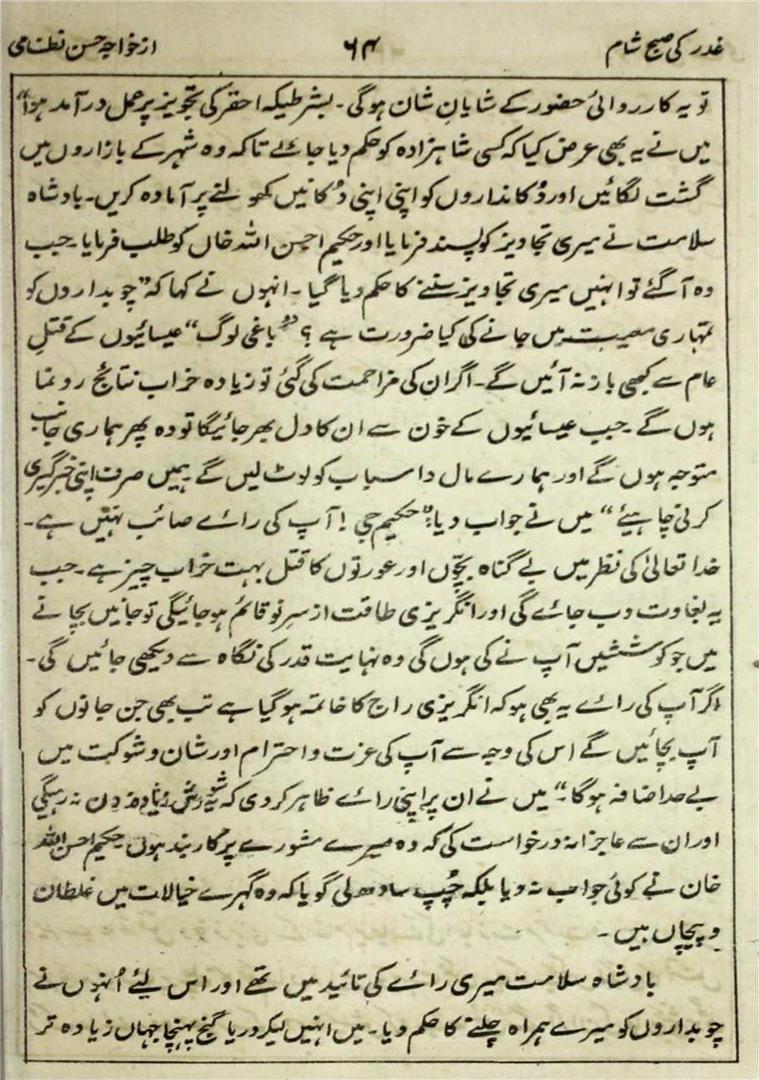 غدر کی صبح شام ۶۴ از خواجہ حسن نظامی
تو یہ کارروائی حضور کے شایانِ شان ہوگی۔ بشرطیکہ احقر کی تجویز پر عمل درآمد ہوا"
میں نے یہ بھی عرض کیا کہ کسی شاہزادہ کو حکم دیا جائے تاکہ وہ شہر کے بازاروں میں
گشت لگائیں اور دُکانداروں کو اپنی اپنی دُکانیں کھولنے پر آمادہ کریں۔ بادشاہ
سلامت نے میری تجاویز کو پسند فرمایا اور حکیم احسن اللہ خاں کو طلب فرمایا۔ جب
وہ آگئے تو انہیں میری تجاویز سننے کا حکم دیا گیا۔ انہوں نے کہا کہ "چوبداروں کو
تمہاری معیت میں جانے کی کیا ضرورت ہے ؟ "باغی لوگ" عیسائیوں کے قتلِ
عام سے کبھی باز نہ آئیں گے۔ اگر ان کی مزاحمت کی گئی تو زیادہ خراب نتائج رونما
ہوں گے۔ جب عیسائیوں کے خون سے ان کا دل بھر جائیگا تو وہ پھر ہماری جانب
متوجہ ہوں گے اور ہمارے مال و اسباب کو لوٹ لیں گے ہمیں صرف اپنی خبرگیری
کرنی چاہیئے" میں نے جواب دیا:" حکیم جی ! آپ کی رائے صائب نہیں ہے۔
خدا تعالیٰ کی نظر میں بے گناہ بچّوں اور عورتوں کا قتل بہت خراب چیز ہے۔ جب
یہ بغاوت دب جائے گی اور انگریزی طاقت از سرِ نو قائم ہو جائیگی تو جانیں بچانے
میں جو کوششیں آپ نے کی ہوں گی وہ نہایت قدر کی نگاہ سے دیکھی جائیں گی۔
اگر آپ کی رائے یہ بھی ہو کہ انگریزی راج کا خاتمہ ہو گیا ہے تب بھی جن جانوں کو
آپ بچائیں گے اس کی وجہ سے آپ کی عزت و احترام اور شان و شوکت میں
بے حد اضافہ ہوگا۔" میں نے ان پر اپنی رائے ظاہر کر دی کہ یہ شورش زیادہ دن نہ رہیگی
اور ان سے عاجزانہ درخواست کی کہ وہ میرے مشورے پر کاربند ہوں حکیم احسن اللہ
خان نے کوئی جواب نہ دیا بلکہ چُپ سادھ لی گویا کہ وہ گہرے خیالات میں غلطان
و پیچاں ہیں۔
بادشاہ سلامت میری رائے کی تائید میں تھے اور اس لئے اُنہوں نے
چوبداروں کو میرے ہمراہ چلنے کا حکم دیا۔ میں انہیں لیکر دریا گنج پہنچا جہاں زیادہ تر